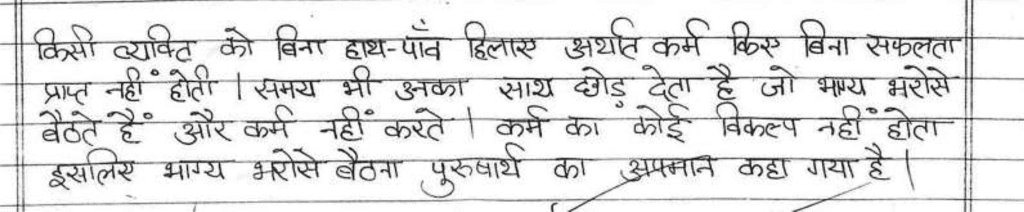 किसी व्यक्ति को बिना हाथ-पाँव हिलाए अर्थात कर्म किए बिना सफलता
प्राप्त नहीं होती। समय भी उनका साथ छोड़ देता है जो भाग्य भरोसे
बैठते हैं और कर्म नहीं करते। कर्म का कोई विकल्प नहीं होता
इसलिए भाग्य भरोसे बैठना पुरुषार्थ का अपमान कहा गया है।